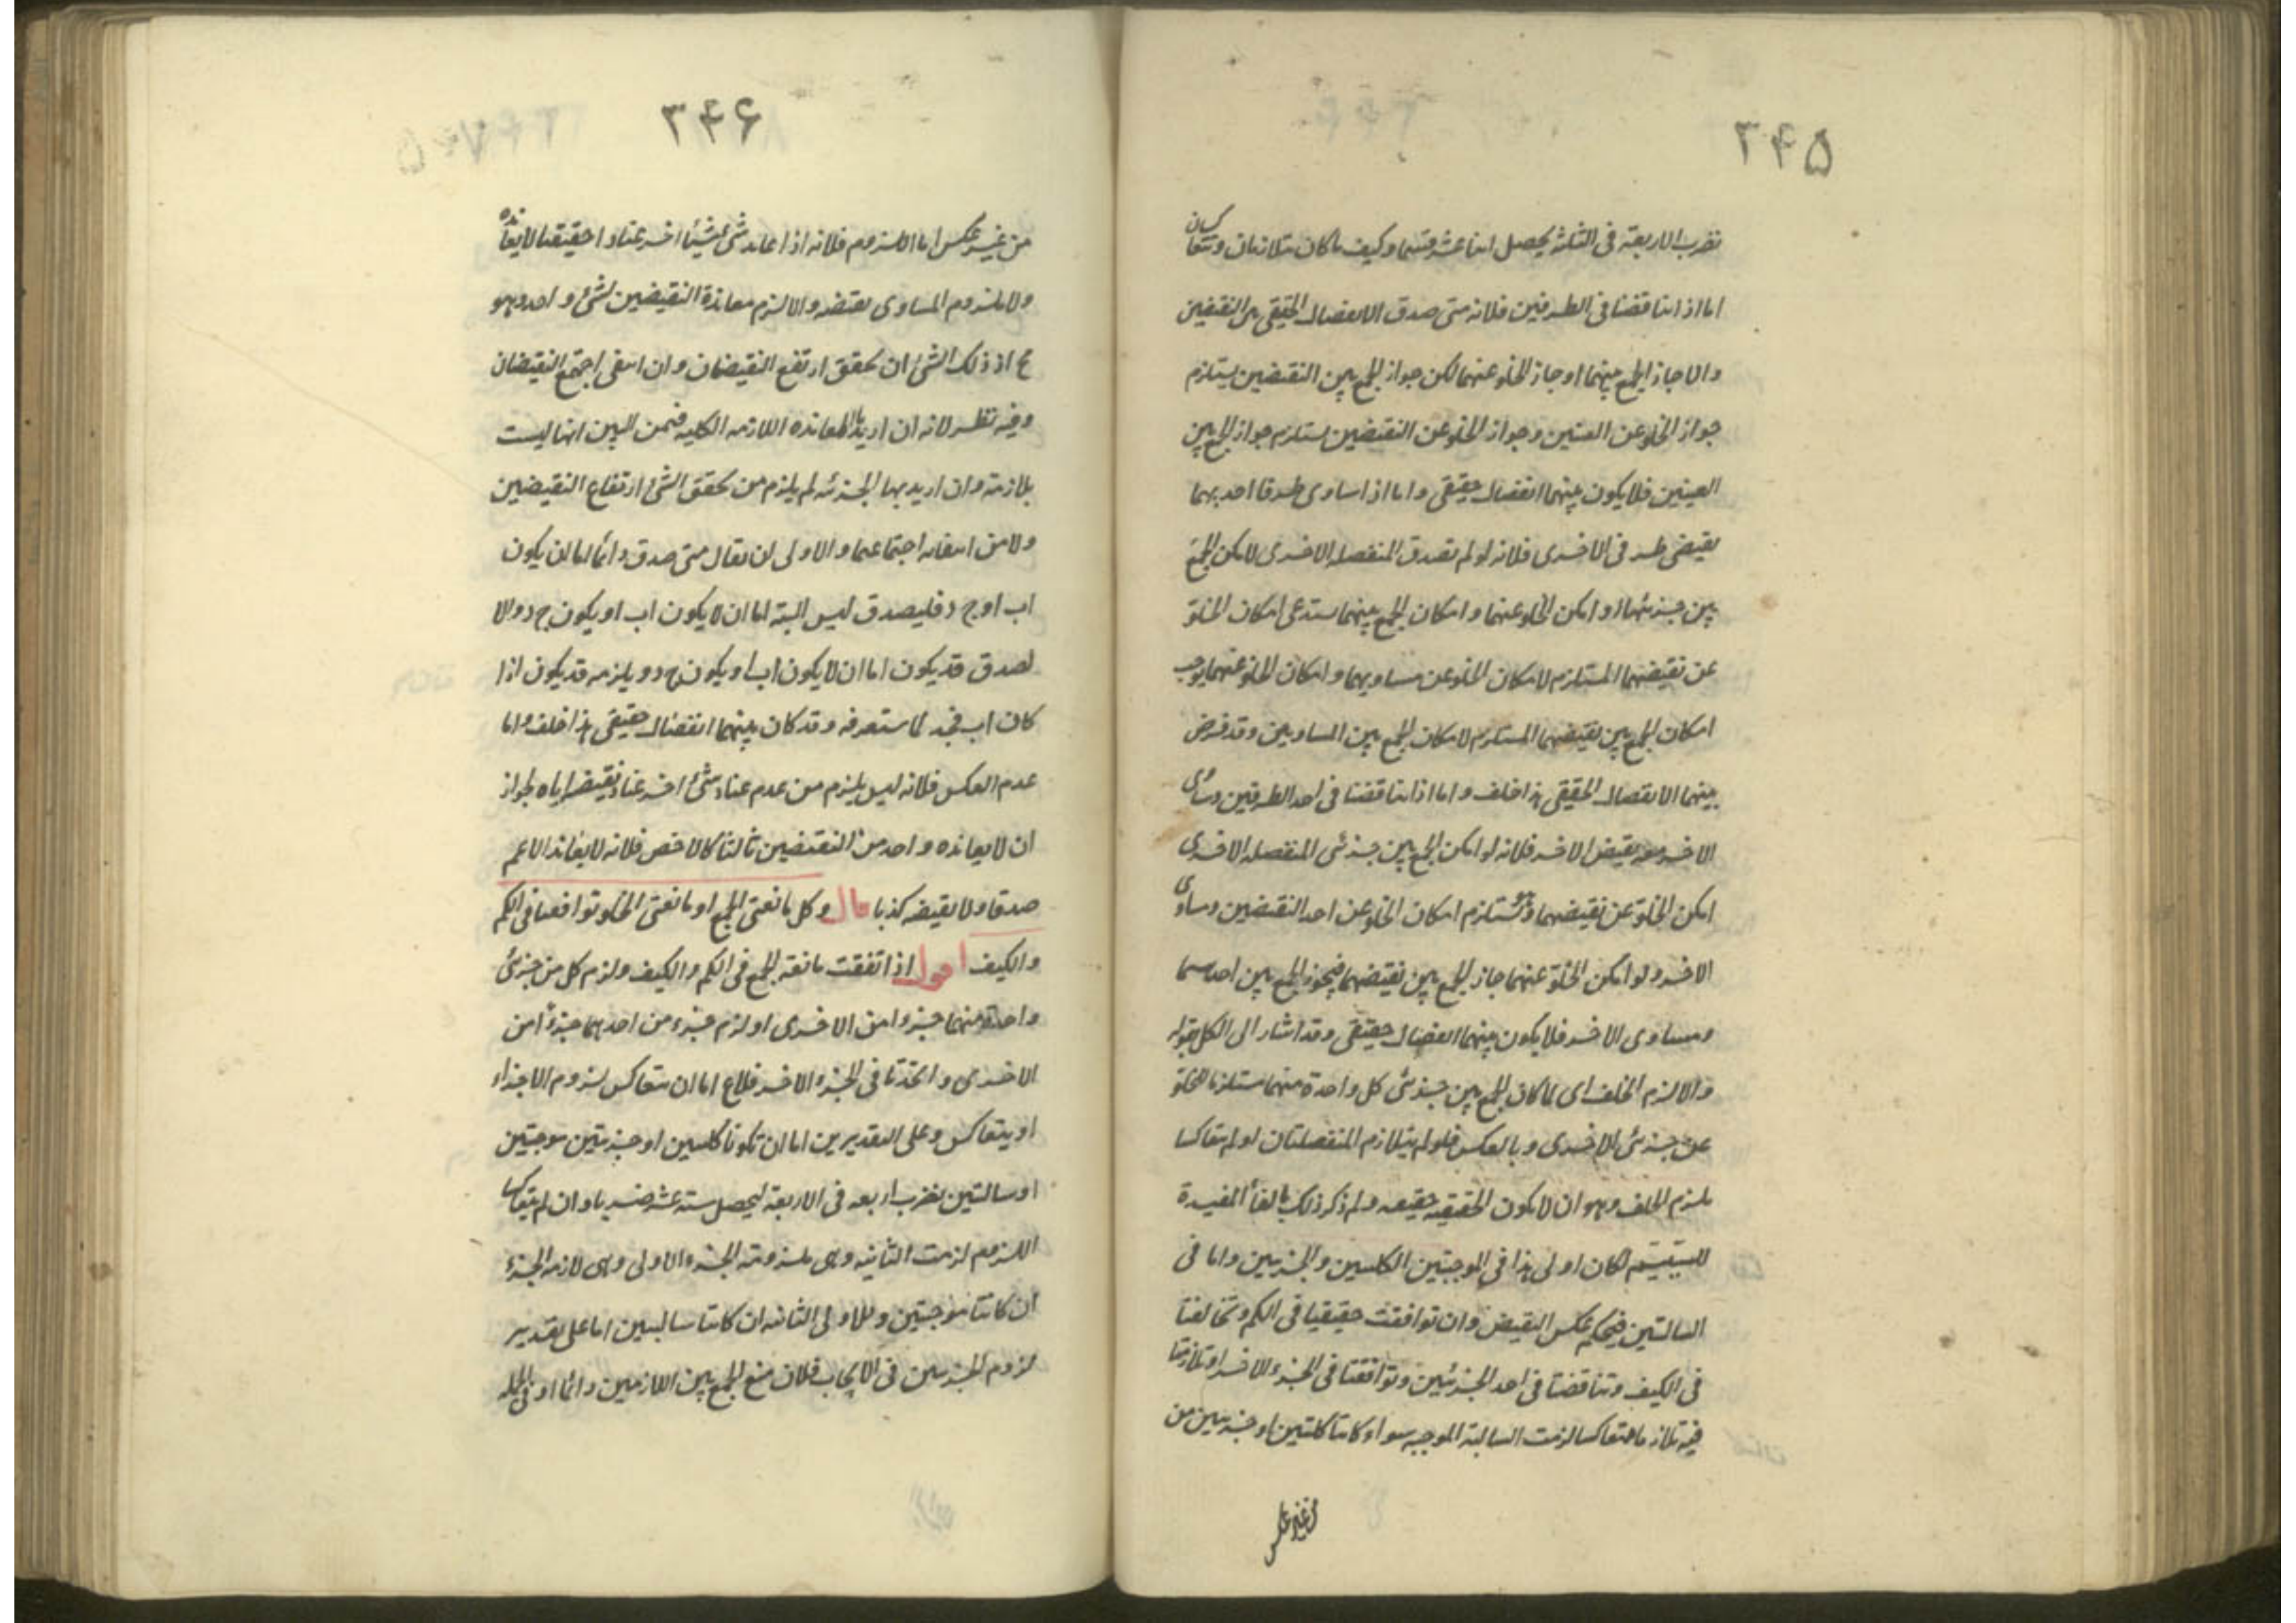 ۳۴۵
نضرب الاربعة فى الثلثة يحصل اثنا عشر قسما وكيف ما كان متلازمان وتتعاكسان
اما اذا تناقضتا فى الطرفين فلانه متى صدق الانفصال الحقيقى بين النقيضين
والا جاز الجمع بينهما او جاز الخلو عنهما لكن جواز الجمع بين النقيضين يستلزم
جواز الخلو عن العينين وجواز الخلو عن النقيضين يستلزم جواز الجمع بين
العينين فلا يكون بينهما انفصال حقيقى واما اذا ساوى طرفا احديهما
نقيضى طرفى الاخرى فلانه لو لم تصدق المنفصلة الاخرى لامكن الجمع
بين جزئيها او امكن الخلو عنهما وامكان الجمع بينهما يستدعى امكان الخلو
عن نقيضيهما المستلزم لامكان الخلو عن مساويهما وامكان الخلو عنهما يوجب
امكان الجمع بين نقيضيهما المستلزم لامكان الجمع بين المساويين وقد فرض
بينهما الانفصال الحقيقى هذا خلف واما اذا تناقضتا فى احد الطرفين وساوى
الاخر نقيض الاخر فلانه لو امكن الجمع بين جزئى المنفصلة الاخرى
امكن الخلو عن نقيضيهما وهو يستلزم امكان الخلو عن احد النقيضين ومساوى
الاخر ولو امكن الخلو عنهما جاز الجمع بين نقيضيهما فيجوز الجمع بين احدهما
ومساوى الاخر فلا يكون بينهما انفصال حقيقى وقد اشار الى الكل بقوله
والا لزم الخلف اى لما كان الجمع بين جزئى كل واحدة منهما مستلزما للخلو
عن جزئى الاخرى وبالعكس فلو لم يتلازم المنفصلتان او لم يتعاكسا
يلزم الخلف وهو ان لا يكون الحقيقية حقيقية ولم ذكر ذلك بالفاء المفيدة
للسببية لكان اولى هذا فى الموجبتين الكليتين والجزئيتين واما فى
السالبتين فبحكم عكس النقيض وان توافقت حقيقيتا فى الكم وتخالفتا
فى الكيف وتناقضتا فى احد الجزئين وتوافقتا فى الجزء الاخر او تلازمتا
فيه تلازما متعاكسا لزمت السالبة الموجبة سواء كانتا كليتين او جزئيتين من
من غير عكس
۳۴۶
من غير عكس اما اللزوم فلانه اذا عاند شئ شيئا اخر عنادا حقيقيا لا يعانده
ولا ملزوم المساوى نقيضه والا لزم معاندة النقيضين لشئ واحد وهو
مح اذ ذلك الشئ ان تحقق ارتفع النقيضان وان انتفى اجتمع النقيضان
وفيه نظر لانه ان اريد بالمعانده اللازمه الكليه فمن البين انها ليست
بلازمة وان اريد بها الجزئيه لم يلزم من تحقق الشئ ارتفاع النقيضين
ولا من انتفائه اجتماعهما والاولى ان يقال متى صدق دائما اما ان يكون
اب او ج د فليصدق ليس البتة اما ان لا يكون اب او يكون ج د والا
لصدق قد يكون اما ان لا يكون اب او يكون ج د ويلزمه قد يكون اذا
كان اب فج د لما ستعرفه وقد كان بينهما انفصال حقيقى هذا خلف واما
عدم العكس فلانه ليس يلزم من عدم عناد شئ اخر عناد نقيضه اياه لجواز
ان لا يعانده واحد من النقيضين ثالثا كالاخص فلانه لا يعاند الاعم
صدقا ولا نقيضه كذبا قال وكل مانعتى الجمع او مانعتى الخلو توافقتا فى الكم
والكيف اقول اذا اتفقت مانعة الجمع فى الكم والكيف ولزم كل من جزئى
واحدة منهما جزءا من الاخرى او لزم جزء من احديهما جزءا من
الاخرى واتحدتا فى الجزء الاخر فلاع اما ان يتعاكس لزوم الاجزاء
او يتعاكس وعلى التقديرين اما ان تكونا كليتين او جزئيتين موجبتين
او سالبتين نضرب اربعه فى الاربعة ليحصل ستة عشر ضربا وان لم يتعاكسا
اللزوم لزمت الثانيه وهى ملزومة الجزء الاولى وهى لازمة الجزء
ان كانتا موجبتين وللاولى الثانيه ان كانتا سالبتين اما على تقدير
لزوم الجزئين فى الايجاب فلان منع الجمع بين اللازمين دائما او فى الجملة